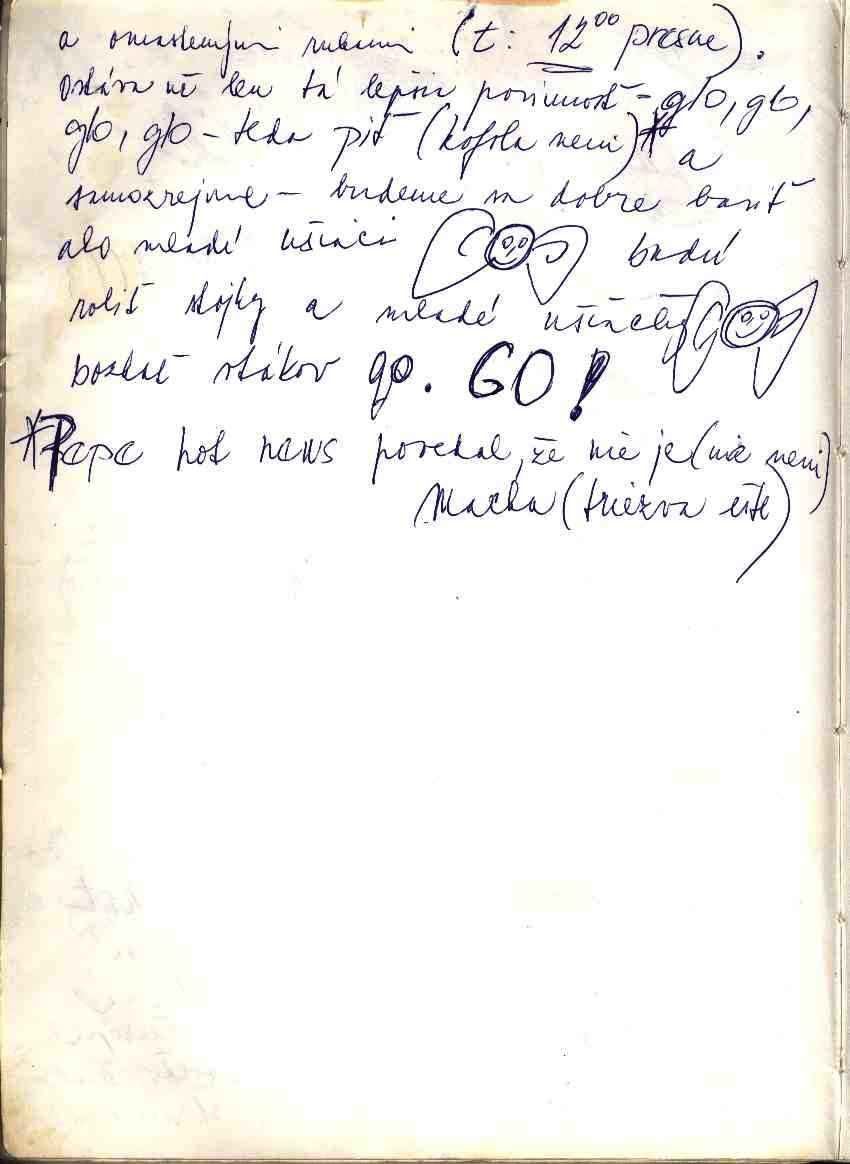 a omastenými rukami (t: 12⁰⁰ presne).
Ostáva už len tá lepšia povinnosť – glo, glo,
glo, glo – teda piť (kofola neni)* a
samozrejme – budeme sa dobre baviť
ako mladí ušiaci budú
robiť stojky a mladé ušiačky
bozkať vtákov go. GO!
*Pepe hot news povedal, že nie je (nie neni)
Macka (triezva ešte)